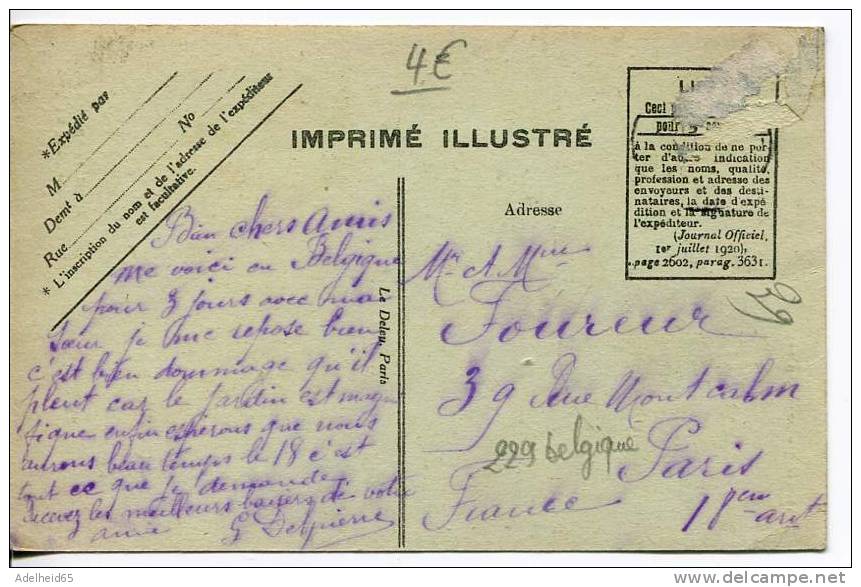 4€
*Expédié par
M
Demt à
No
Rue
* L'inscription du nom et de l'adresse de l'expéditeur
est facultative.
IMPRIMÉ ILLUSTRÉ
Ceci
pour 5
à la condition de ne por-
ter d'autre indication
que les noms, qualité,
profession et adresse des
envoyeurs et des desti-
nataires, la date d'expé-
dition et la signature de
l'expéditeur.
(Journal Officiel,
1er juillet 1920),
page 2602, parag. 3631.
Adresse
Bien chers Amis
me voici en Belgique
pour 3 jours avec ma
Sœur je me repose bien
c'est bien dommage qu'il
pleut car le jardin est magni
fique enfin esperons que nous
aurons beau temps le 18 c'est
tout ce que je demande
Recevez les meilleurs baisers de votre
amie G Delpierre
Le Deley, Paris
Mr & Mme
Foureur
39 Rue Montcalm
Paris
France 18em arrt
229 belgique
29
Adelheid65
www.delcampe.net